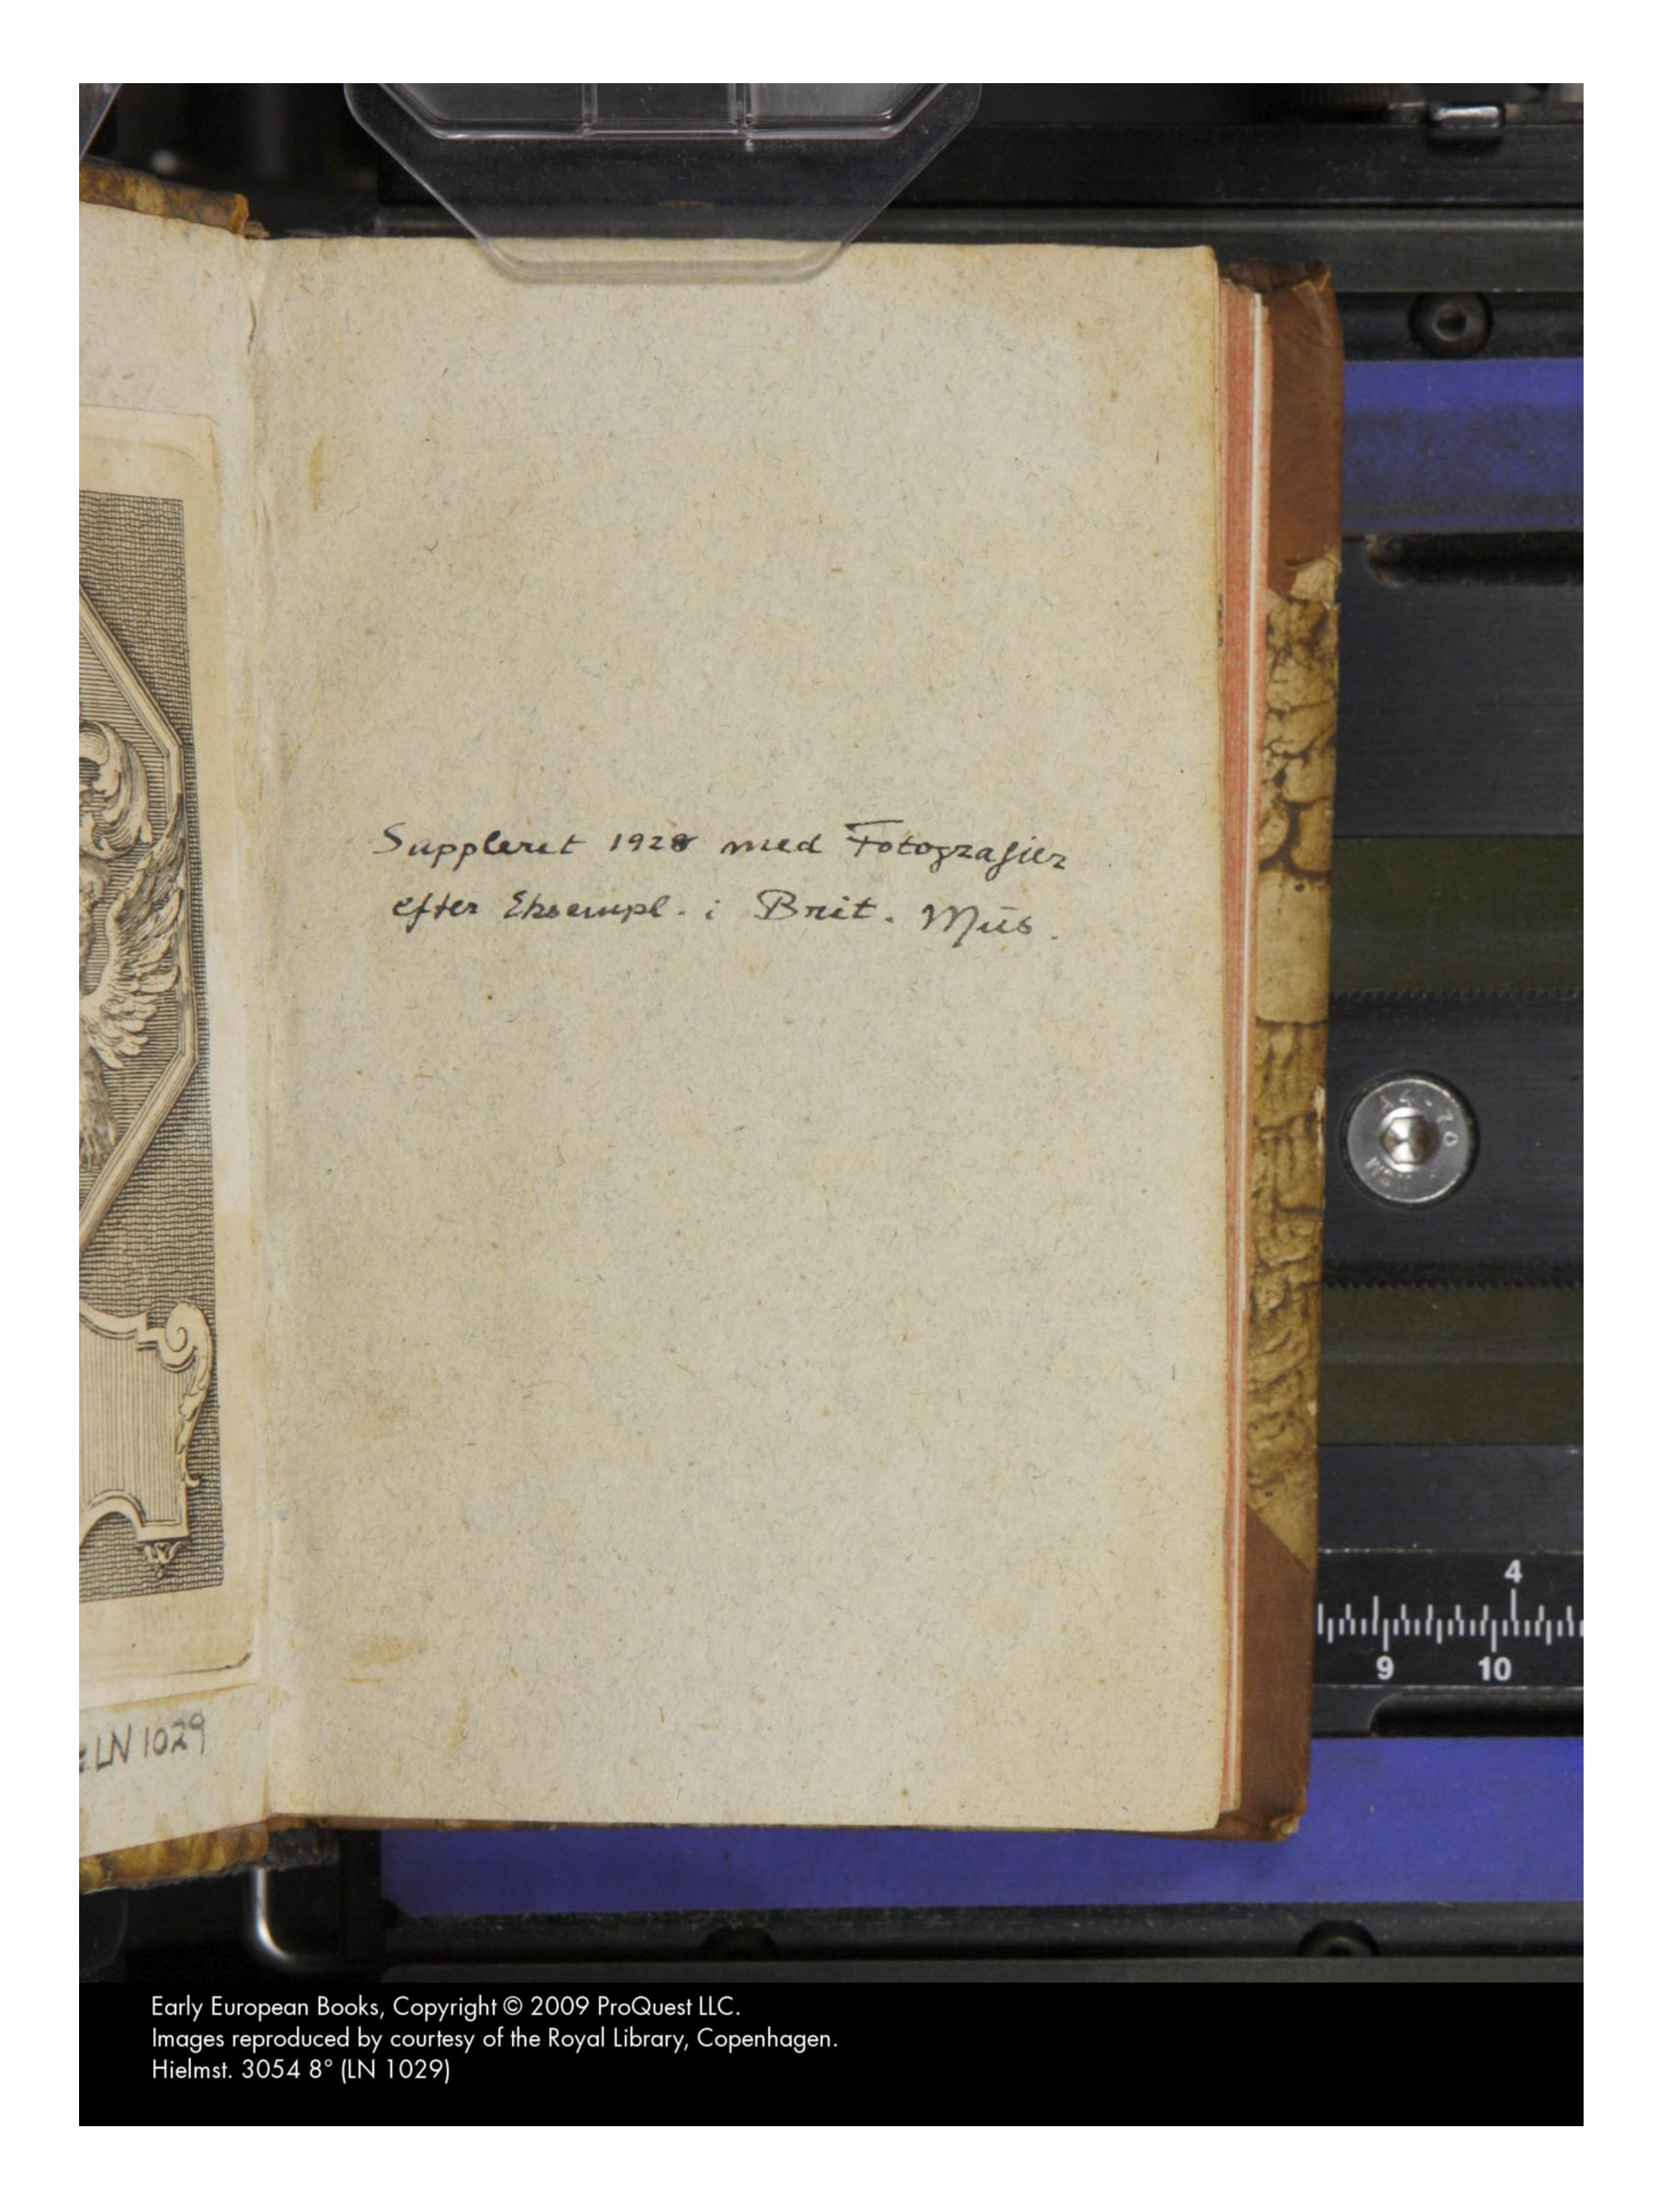 Suppleret 1928 med Fotografier
efter Eksempl. i Brit. Mus.
LN 1029
A4-70
4
9 10
Early European Books, Copyright © 2009 ProQuest LLC.
Images reproduced by courtesy of the Royal Library, Copenhagen.
Hielmst. 3054 8° (LN 1029)